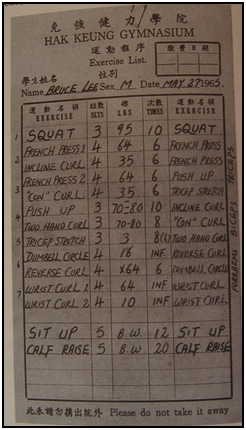 克強健力學院
HAK KEUNG GYMNASIUM
運動程序
Exercise List.
繳費日期
學生姓名 性別
Name BRUCE LEE Sex M Date MAY 27 1965.
運動名稱 組數 磅 次數 運動名稱
EXERCISE SETS LBS TIMES EXERCISE
1 SQUAT 3 95 10 SQUAT
2 FRENCH PRESS 1 4 64 6 FRENCH PRESS
INCLINE CURL 4 35 6 FRENCH PRESS
3 FRENCH PRESS 2 4 64 6 PUSH UP
"CON" CURL 4 35 6 TRICEP STRETCH
4 PUSH UP 3 70-80 10 INCLINE CURL
TWO HAND CURL 3 70-80 8 "CON" CURL
5 TRICEP STRETCH 3 3 TWO HAND CURL
6 DUMBELL CIRCLE 4 16 INF REVERSE CURL
REVERSE CURL 4 X64 6 DUMBELL CIRCLE
7 WRIST CURL 1 4 64 INF WRIST CURL
WRIST CURL 2 4 10 INF WRIST CURL
SIT UP 5 B.W. 12 SIT UP
CALF RAISE 5 B.W 20 CALF RAISE
TRICEPS
BICEPS
FOREARMS
此表請勿攜出院外 Please do not take it away